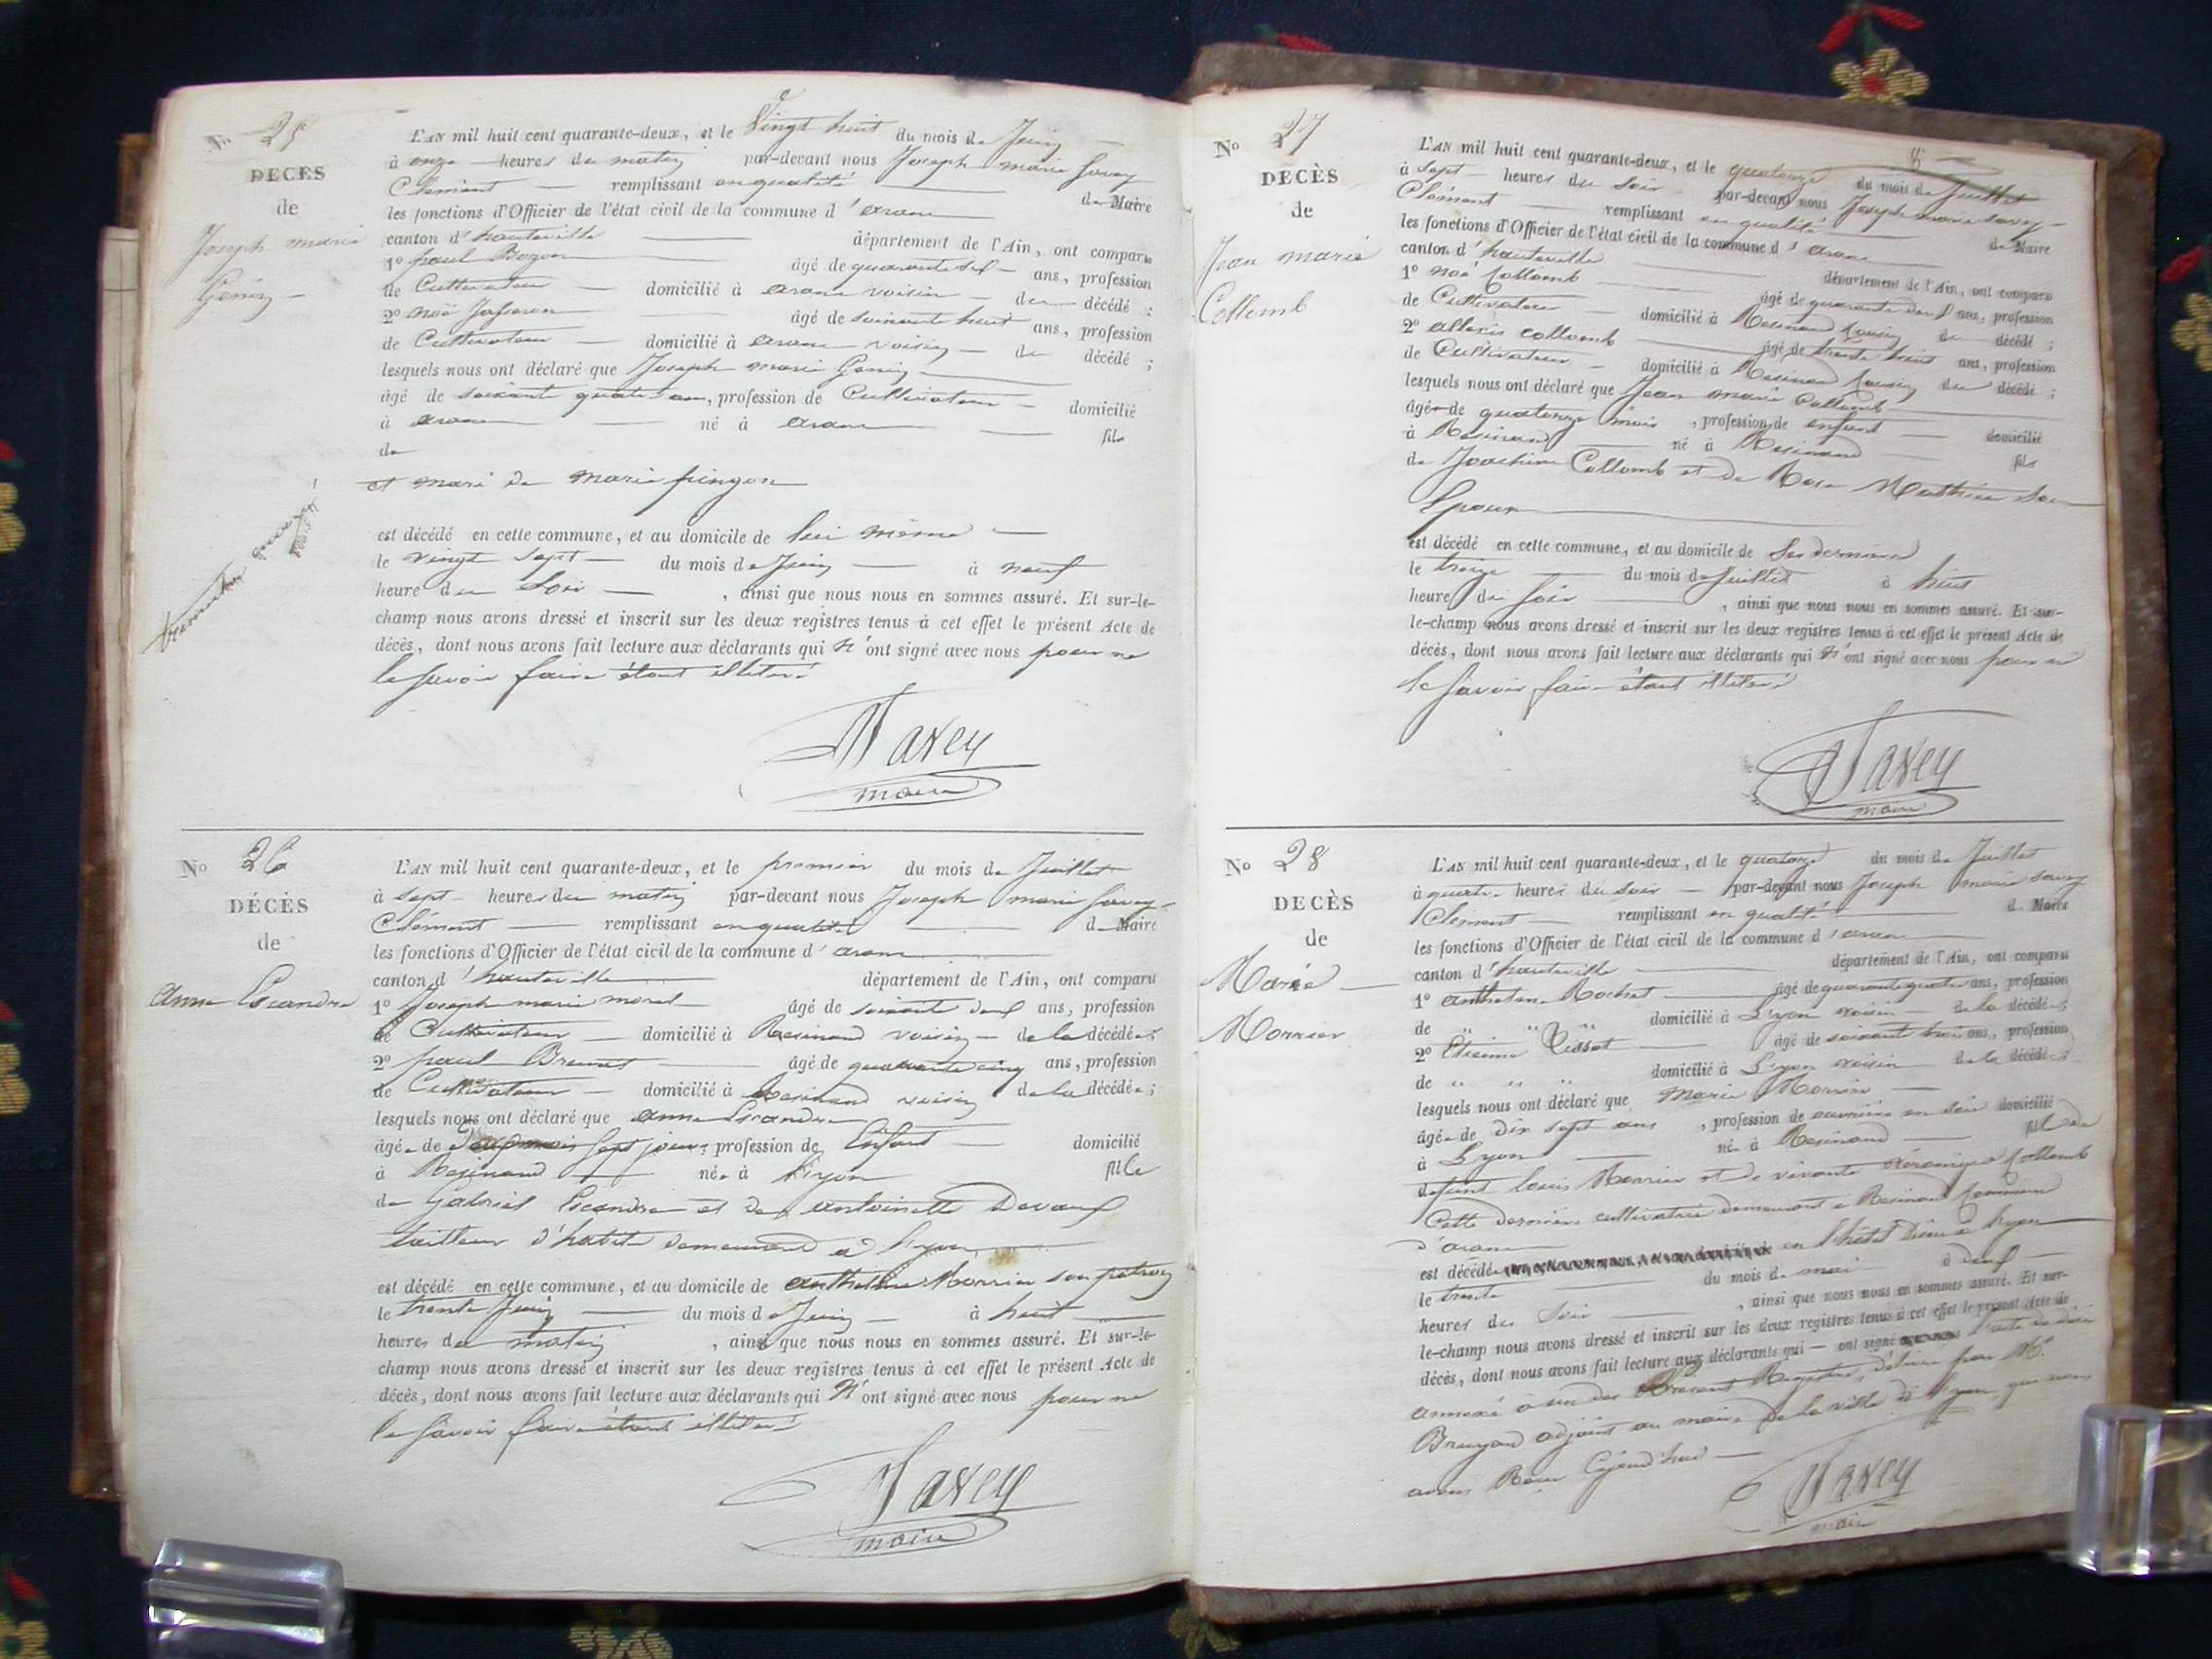 No 25
DÉCÈS
de
Joseph marie
Genin
L'AN mil huit cent quarante-deux, et le Vingt huit du mois de Juin
à onze heures du matin par-devant nous Joseph marie Savey
Clément remplissant en qualité de Maire
les fonctions d'Officier de l'état civil de la commune d'aranc
canton d'hauteville département de l'Ain, ont comparu
1o paul Bozon âgé de quarante ans, profession
de Cultivateur domicilié à aranc voisin du décédé ;
2o noë âgé de soixante huit ans, profession
de Cultivateur domicilié à aranc voisin du décédé ;
lesquels nous ont déclaré que Joseph marie Genin
âgé de soixante quatre ans, profession de Cultivateur domicilié
à aranc né à aranc fils
de
et mari de marie pingon
est décédé en cette commune, et au domicile de lui même
le vingt sept du mois de Juin à neuf
heure du Soir , ainsi que nous nous en sommes assuré. Et sur-le-
champ nous avons dressé et inscrit sur les deux registres tenus à cet effet le présent Acte de
décès, dont nous avons fait lecture aux déclarants qui n'ont signé avec nous pour ne
le savoir faire étant illitéré
Savey
maire
No 26
DÉCÈS
de
Anne Escandre
L'AN mil huit cent quarante-deux, et le premier du mois de Juillet
à sept heures du matin par-devant nous Joseph marie Savey
Clément remplissant en qualité de Maire
les fonctions d'Officier de l'état civil de la commune d'aranc
canton d'hauteville département de l'Ain, ont comparu
1o Joseph marie morel âgé de soixante deux ans, profession
de Cultivateur domicilié à Resinand voisin de la décédée ;
2o paul Brunet âgé de quarante cinq ans, profession
de Cultivateur domicilié à Resinand voisin de la décédée ;
lesquels nous ont déclaré que anne Escandre
âgée de sept jours, profession de Enfant domicilié
à Resinand née à Lyon fille
de Gabriel Escandre et de antoinette Devaux
tailleur d'habits demeurant à Lyon
est décédé en cette commune, et au domicile de anthelme Morrier son patron
le trente Juin du mois de Juin à huit
heures du matin , ainsi que nous nous en sommes assuré. Et sur-le-
champ nous avons dressé et inscrit sur les deux registres tenus à cet effet le présent Acte de
décès, dont nous avons fait lecture aux déclarants qui n'ont signé avec nous pour ne
le savoir faire étant illitéré
Savey
maire
No 27
DÉCÈS
de
Jean marie
Collomb
L'AN mil huit cent quarante-deux, et le quatorze du mois de Juillet
à sept heures du Soir par-devant nous Joseph marie Savey
Clément remplissant en qualité de Maire
les fonctions d'Officier de l'état civil de la commune d'aranc
canton d'hauteville département de l'Ain, ont comparu
1o noé Collomb âgé de quarante deux ans, profession
de Cultivateur domicilié à Resinand Cousin du décédé ;
2o allexis collomb âgé de trente huit ans, profession
de Cultivateur domicilié à Resinand Cousin du décédé ;
lesquels nous ont déclaré que Jean marie Collomb
âgé de quatorze mois , profession de enfant domicilié
à Resinand né à Resinand fils
de Joachim Collomb et de Rose Mathieu son
Epouse
est décédé en cette commune, et au domicile de
le treize du mois de Juillet à huit
heure du soir , ainsi que nous nous en sommes assuré. Et sur-
le-champ nous avons dressé et inscrit sur les deux registres tenus à cet effet le présent Acte de
décès, dont nous avons fait lecture aux déclarants qui n'ont signé avec nous pour ne
le savoir faire étant illitéré
Savey
maire
No 28
DÉCÈS
de
Marie
Morrier
L'AN mil huit cent quarante-deux, et le quatorze du mois de Juillet
à quatre heures du soir par-devant nous Joseph marie Savey
Clément remplissant en qualité de Maire
les fonctions d'Officier de l'état civil de la commune d'aranc
canton d'hauteville département de l'Ain, ont comparu
1o anthelme Rochet âgé de quarante quatre ans, profession
de " " " domicilié à Lyon voisin de la décédée ;
2o Etienne Tissot âgé de soixante trois ans, profession
de " " " domicilié à Lyon voisin de la décédée ;
lesquels nous ont déclaré que Marie Morrier
âgée de dix sept ans , profession de ouvrière en soie domicilié
à Lyon née à Resinand fille de
défunt louis Morrier et de vivante véronique Collomb
Cette dernière cultivatrice demeurant à Resinand Commune
d'aranc
est décédée en l'hôtel Dieu à Lyon
le trente du mois de mai à deux
heures du Soir , ainsi que nous nous en sommes assuré. Et sur-
le-champ nous avons dressé et inscrit sur les deux registres tenus à cet effet le présent Acte de
décès, dont nous avons fait lecture aux déclarants qui ont signé
annexé à un des présent Registres, délivré par Mr
Bruyard adjoint au maire de la ville de Lyon que nous
avons Reçu
Savey
maire